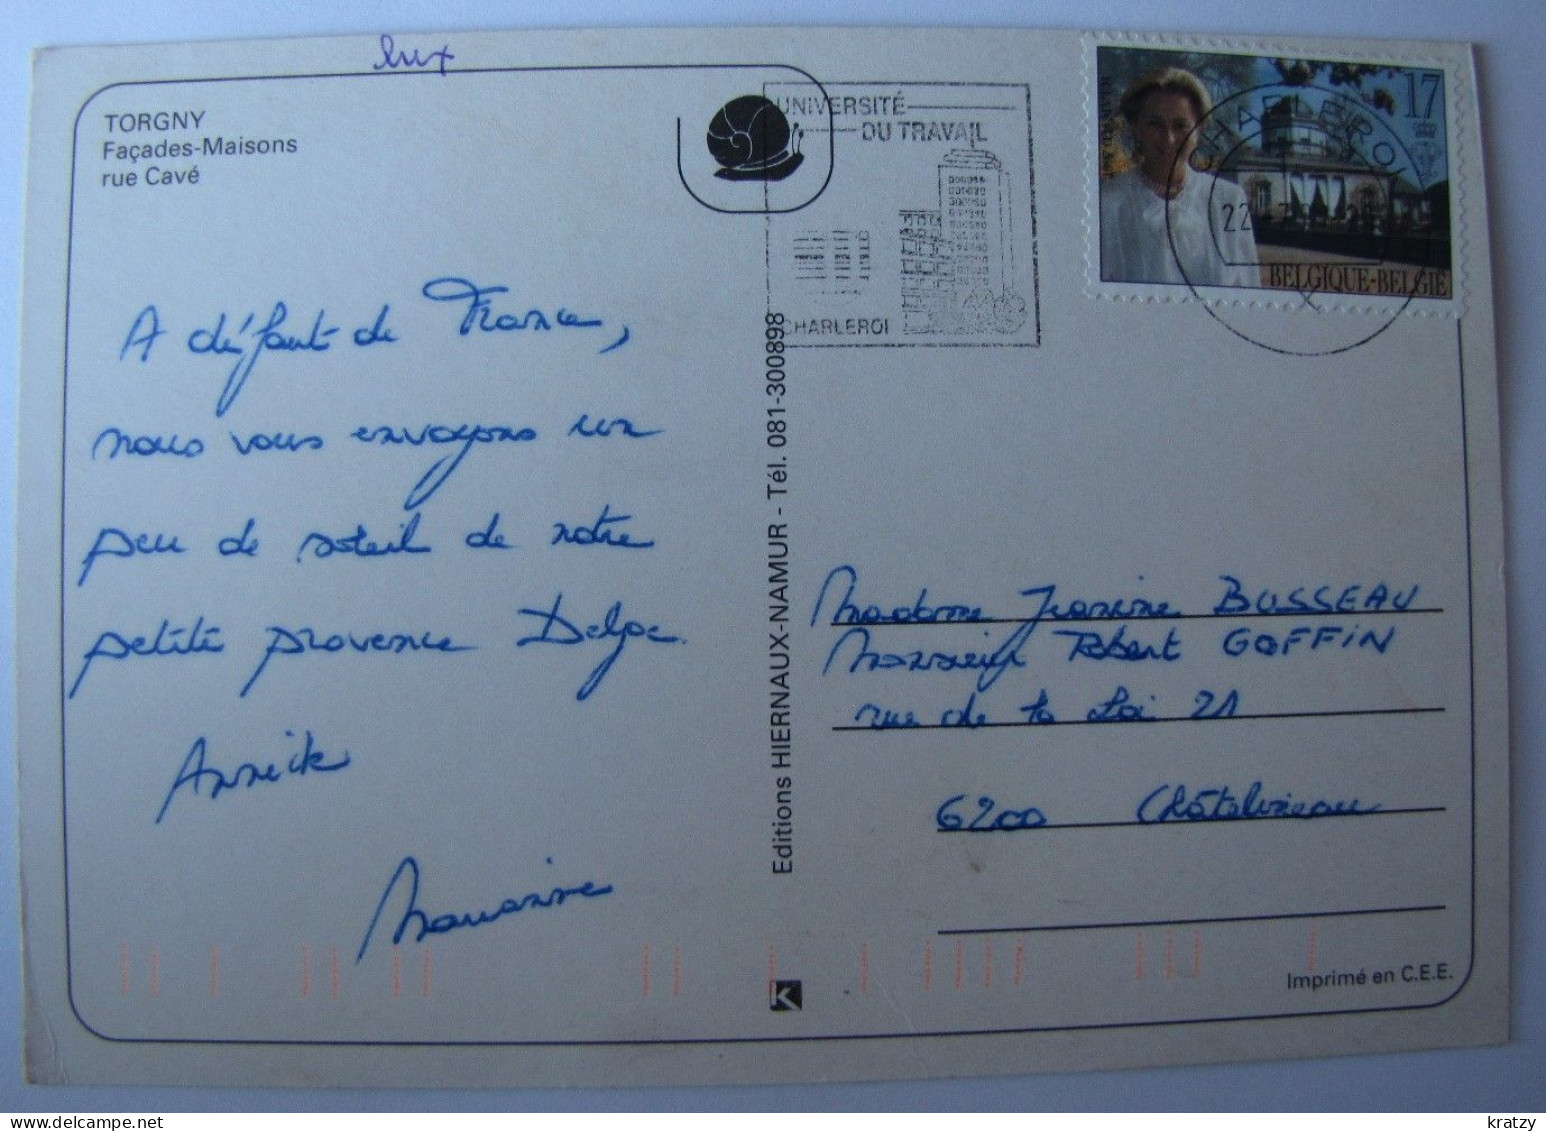 lux
TORGNY
Façades-Maisons
rue Cavé
A défaut de France,
nous vous envoyons un
peu de soleil de notre
petite provence Belge.
Annick
Marianne
Editions HIERNAUX-NAMUR - Tél. 081-300898
UNIVERSITÉ
DU TRAVAIL
CHARLEROI
CHARLEROI
22
17
BELGIQUE-BELGIË
Madame Jeanine BUSSEAU
Monsieur Robert GOFFIN
rue de la Loi 21
6200 Châtelineau
Imprimé en C.E.E.
K
kratzy